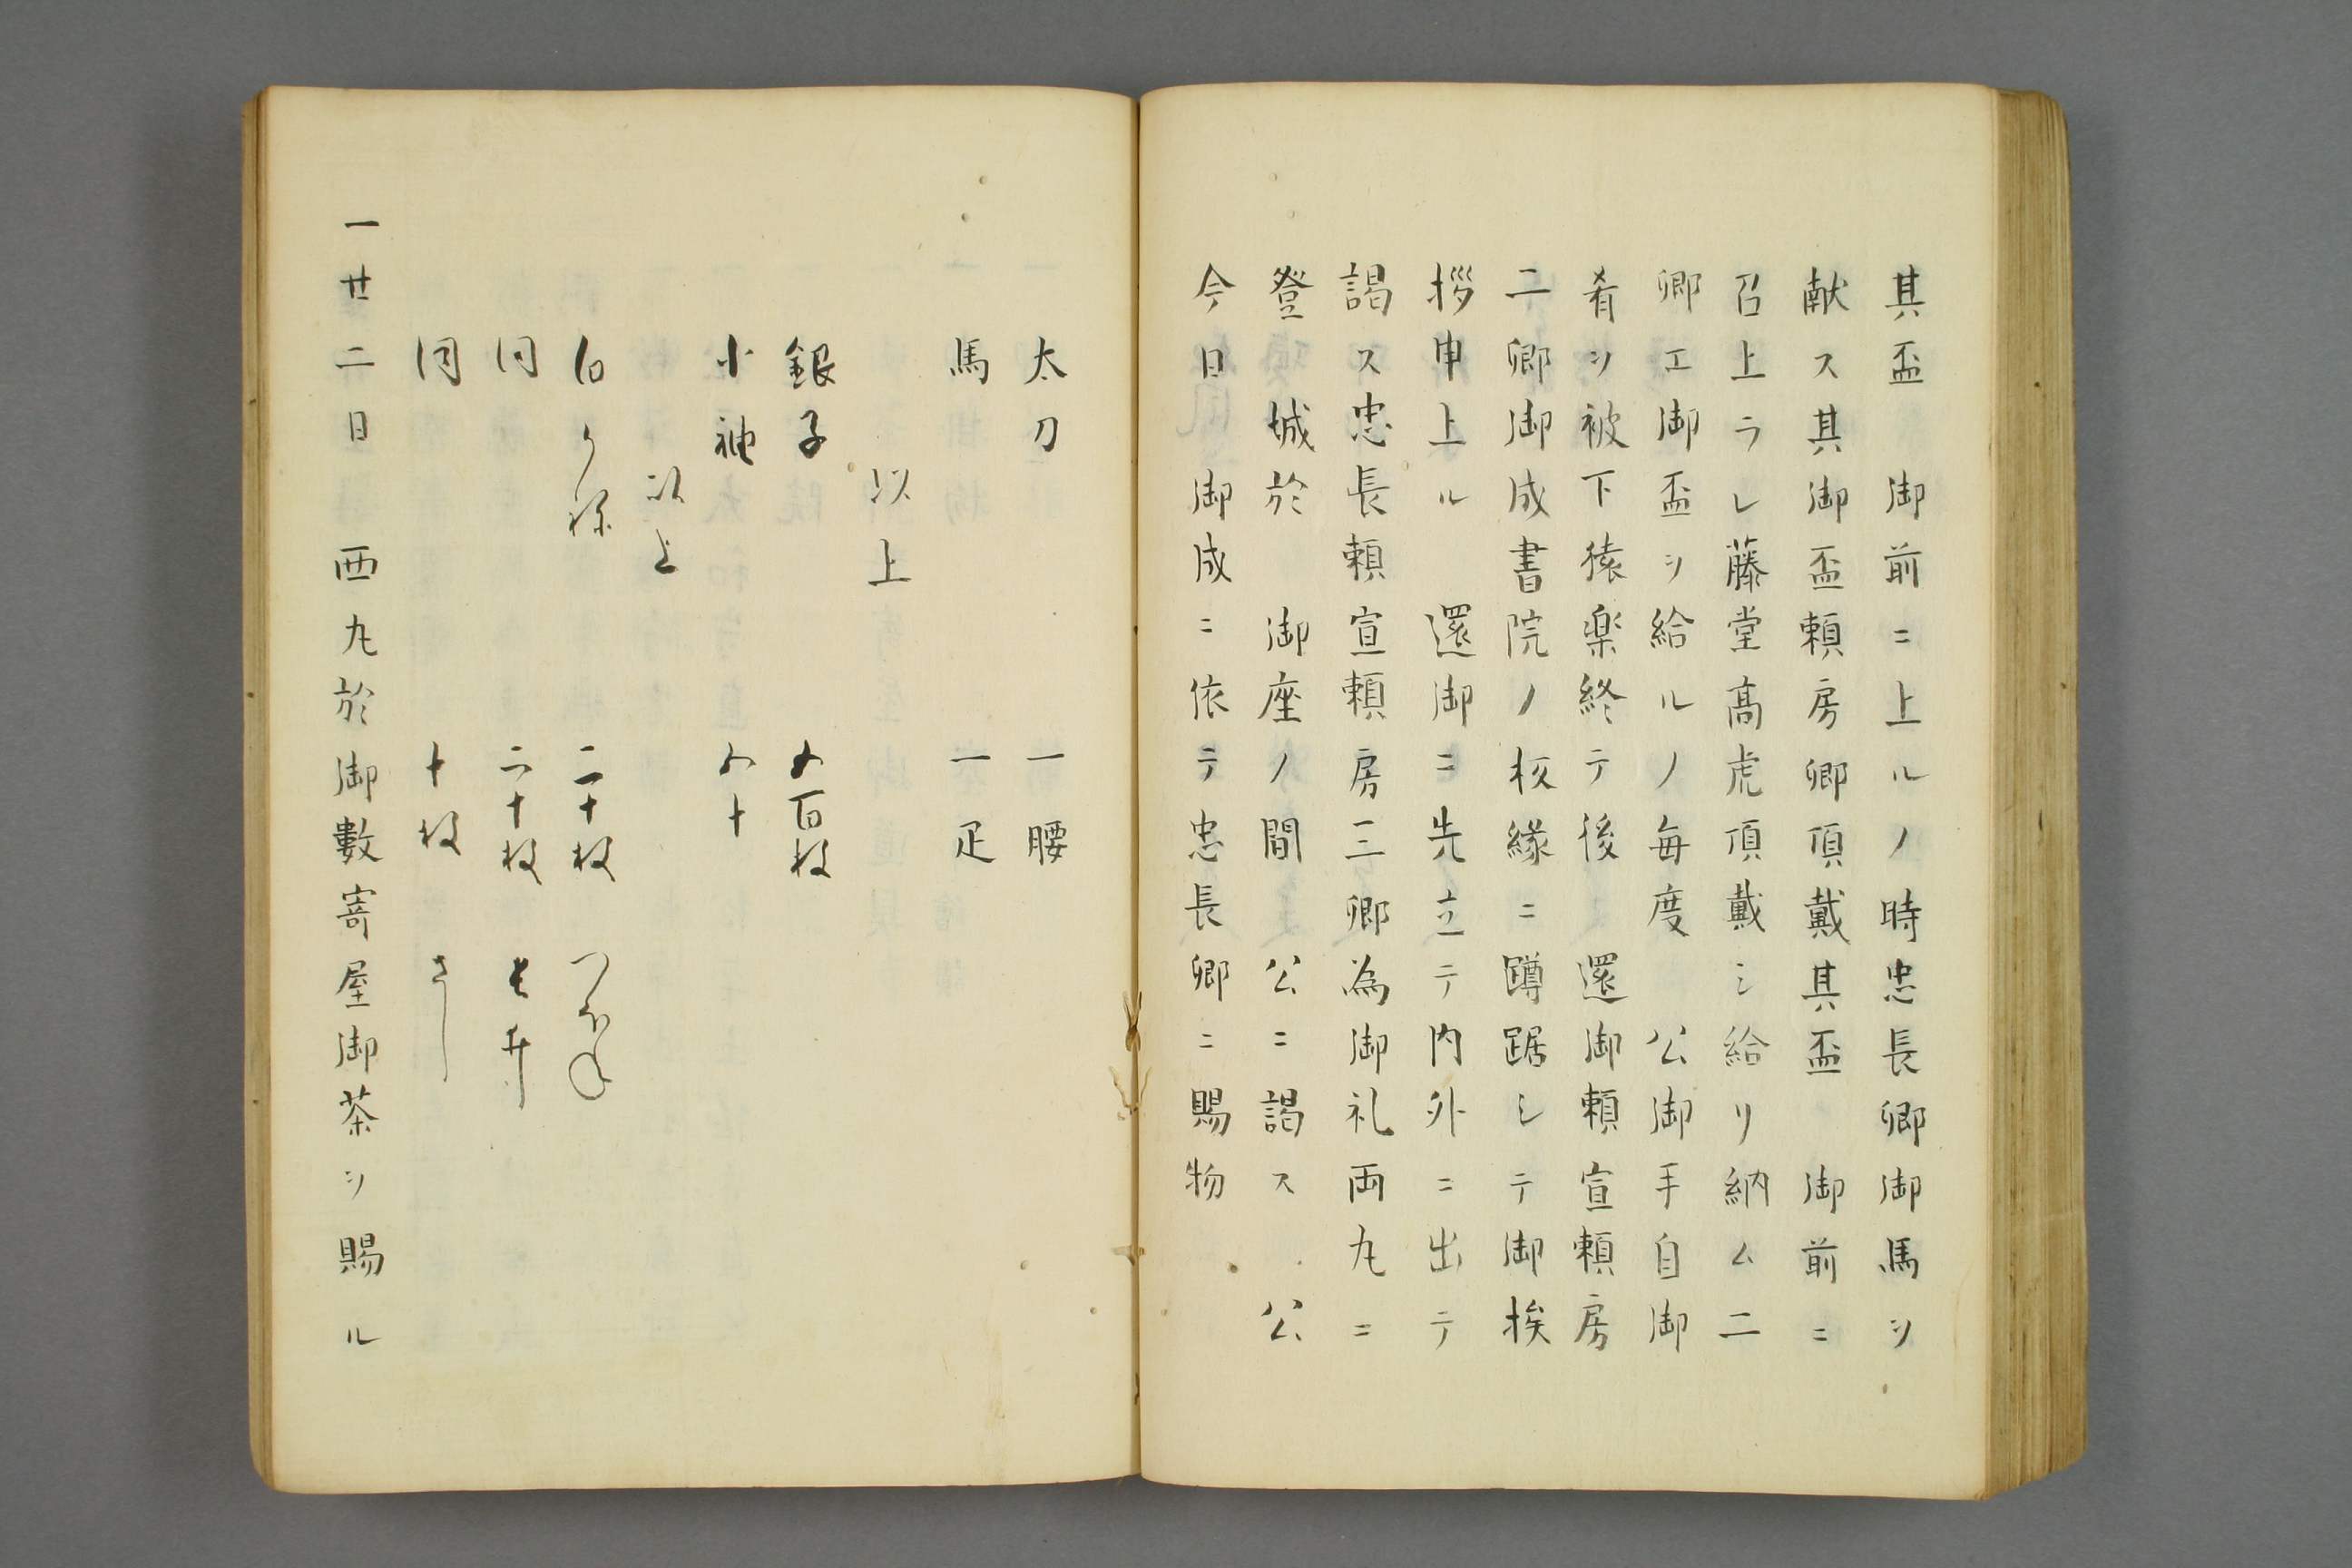 其盃　御前ニ上ルノ時忠長卿御馬ヲ
献ス其御盃頼房卿頂戴其盃　御前ニ
召上ラレ藤堂髙虎頂戴シ給リ納ム二
卿エ御盃ヲ給ルノ毎度　公御手自御
肴ヲ被下猿楽終テ後　還御頼宣頼房
二卿御成書院ノ板縁ニ蹲踞シテ御挨
拶申上ル　還御ニ先立テ内外ニ出テ
謁ス忠長頼宣頼房三卿為御礼両丸ニ
登　城於　御座ノ間　公ニ謁ス　公
今日　御成ニ依テ忠長卿ニ賜物
太刀　一腰
馬　一疋
以上
銀子　五百枚
小袖　五十
以上
二十枚　つほね
同　二十枚
同　十枚
一廿二日　西丸於御數寄屋御茶ヲ賜ル